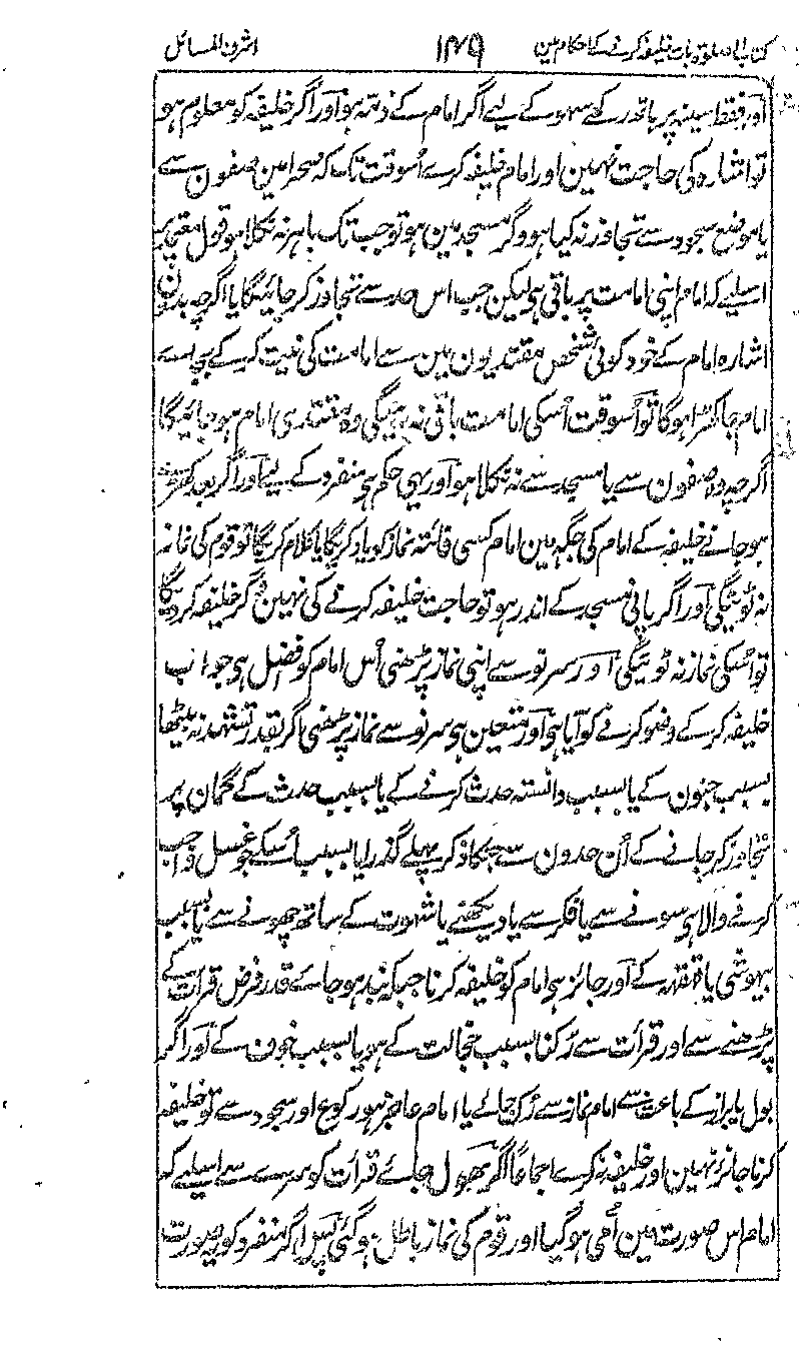 کتاب الصلوة باب خلیفہ کرنے کے احکام مین ۱۴۹ اشرف المسائل
اور فقط سینہ پر ہاتھ رکھے سہو کے لیے اگر امام کے ذمہ ہو اور اگر خلیفہ کو معلوم ہو
تو اشارہ کی حاجت نہین اور امام خلیفہ کرے اُسوقت تک کہ صحرا مین صفون سے
یا موضع سجود سے تجاوز نہ کیا ہو وگر مسجد مین ہو تو جب تک باہر نہ نکلا ہو قول مفتی بہ
اسلیے کہ امام اپنی امامت پر باقی ہی لیکن جب اس حد سے تجاوز کر جائیگا یا اگرچہ بدون
اشارہ امام کے خود کوئی شخص مقتدیون مین سے امامت کی نیت کر کے بجاے
امام جا کھڑا ہوگا تو اُسوقت اُسکی امامت باقی نہ رہیگی وہ مقتدی امام ہو جائیگا
اگرچہ وہ صفون سے یا مسجد سے نہ نکلا ہو اور یہی حکم ہی منفرد کے لیے اور اگر بعد کھڑے
ہو جانے خلیفہ کے امام کی جگہ مین امام کسی فائتہ نماز کو یاد کریگا یا کلام کریگا تو قوم کی نماز
نہ ٹوٹیگی اور اگر پانی مسجد کے اندر ہو تو حاجت خلیفہ کرنے کی نہین اگر خلیفہ کردیگا
تو اُسکی نماز نہ ٹوٹیگی اور سر نو سے اپنی نماز پڑھنی اُس امام کو فضل ہی جو اب
خلیفہ کر کے وضو کرنے کو آیا ہی اور متعین ہی سر نو سے نماز پڑھنی اگر بقدر تشہد نہ بیٹھا
بسبب جنون کے یا بسبب دانستہ حدث کرنے کے یا بسبب حدث کے گمان پر
تجاوز کر جانے کے اُن حدون سے جنکا ذکر پہلے گذرا یا بسبب اُسکے جو غسل واجب
کرنے والا ہی سونے سے یا فکر سے یا دیکھنے یا شہوت کے ساتھ چھونے سے یا بسبب
بیہوشی یا قہقہہ کے اور جائز ہی امام کو خلیفہ کرنا جبکہ بند ہو جائے قدر فرض قرأت کے
پڑھنے سے اور قرأت سے رُکنا بسبب خجالت کے ہو یا بسبب خوف کے اور اگر
بول یا براز کے باعث سے امام نماز سے رُک جائے یا امام عاجز ہو رکوع اور سجود سے تو خلیفہ
کرنا جائز نہین اور خلیفہ نہ کرے اجماعًا اگر بھول جائے قرأت کو سرے سے اسلیے کہ
امام اس صورت مین اُمی ہو گیا اور قوم کی نماز باطل ہوگئی پس اگر منفرد کو یہ صورت